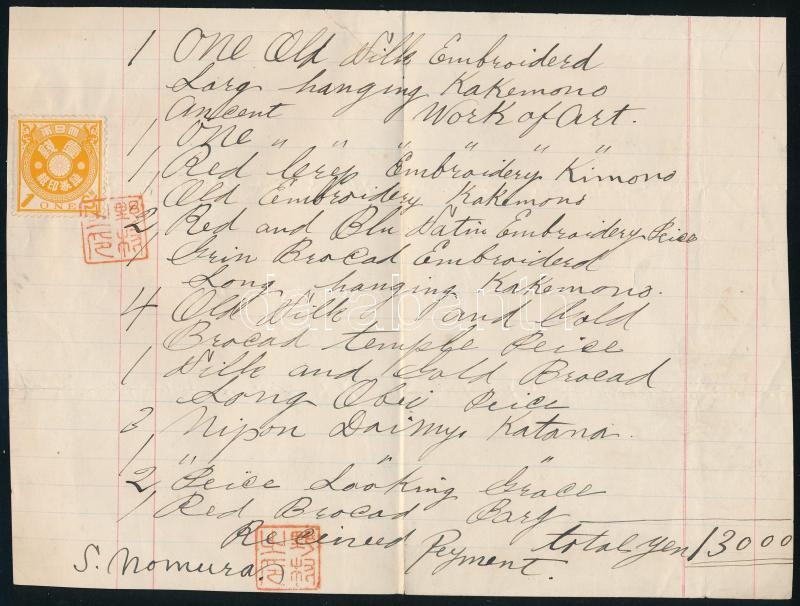 1 One Old Silk Embroiderd
Larg hanging Kakemono
Ancent Work of Art.
1 One " " " " "
1 Red Crep Embroidery Kimono
Old Embroidery Kakemono
2 Red and Blu Satin Embroidery Peice
1 Grin Brocad Embroiderd
Long hanging Kakemono.
4 Old Silk and Gold
Brocad temple Peice
1 Silk and Gold Brocad
Long Obi Peice
3 Nipon Daimyo Katana.
1 " " "
2 Peice Looking Grace
1 Red Brocad
total yen 130 00
Receined Peyment.
S. Nomura.
大日本
証券印紙
1 ONE
darabanth